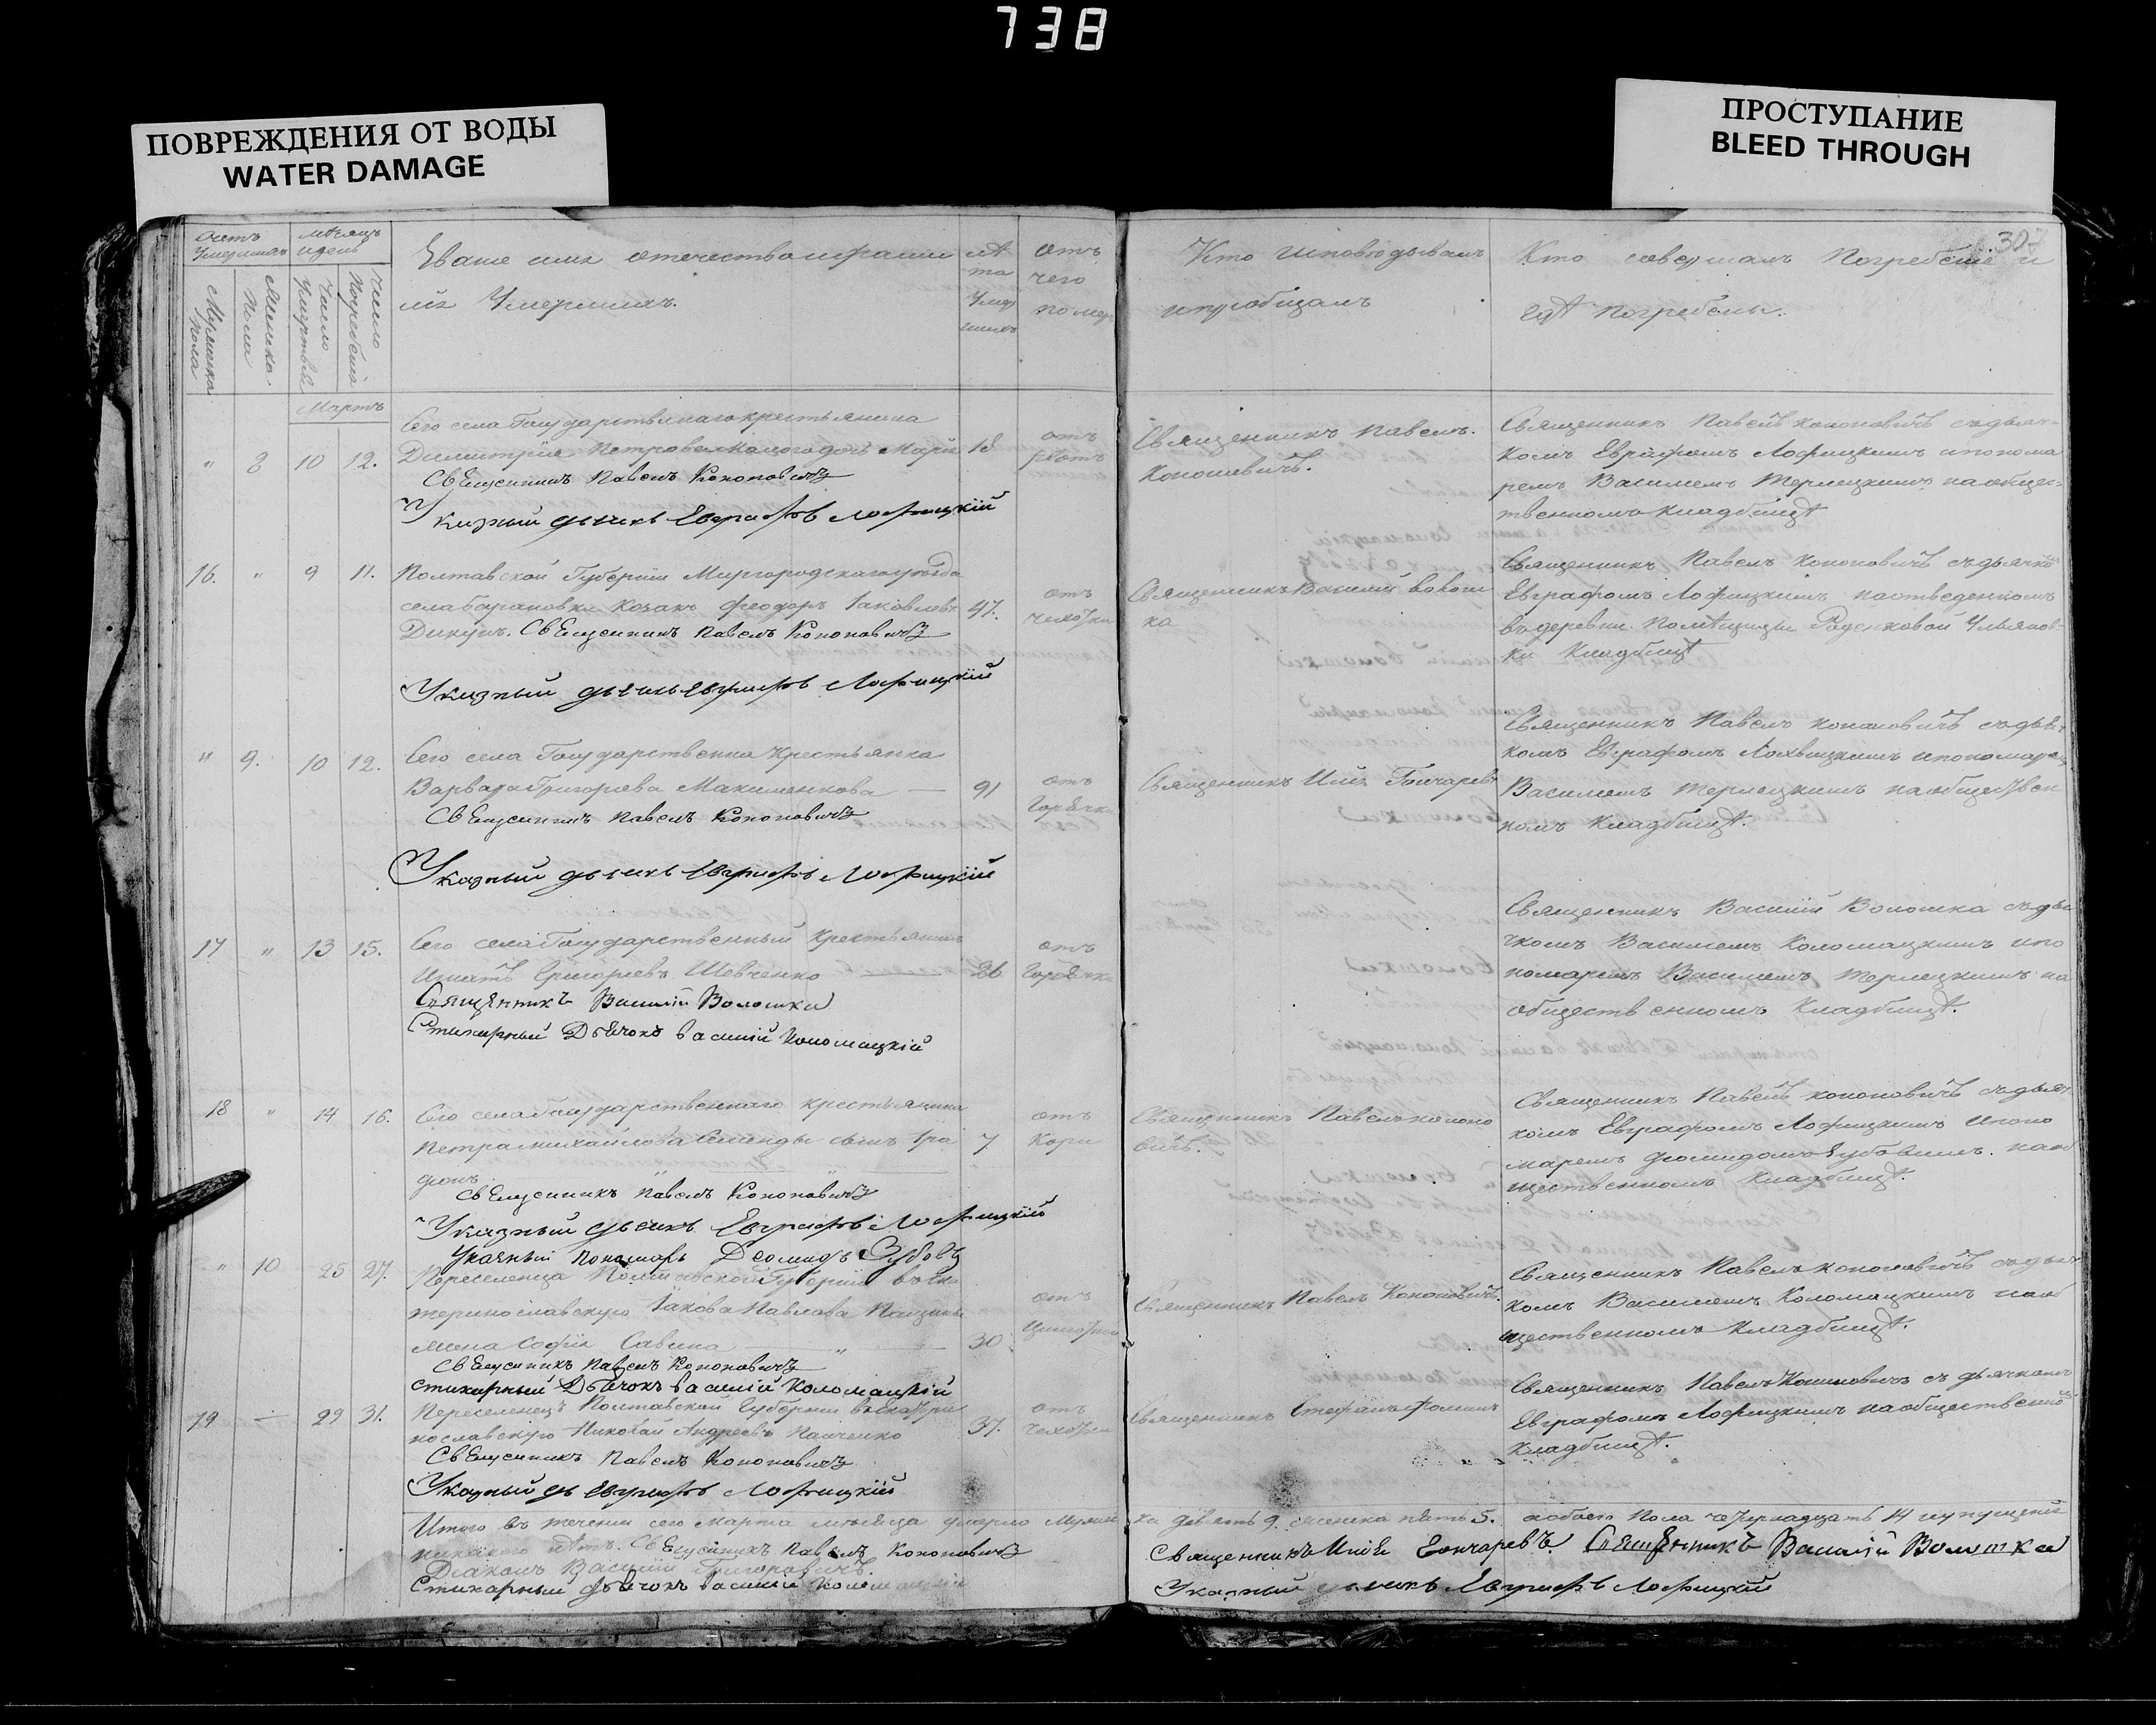 738
ПОВРЕЖДЕНИЯ ОТ ВОДЫ
WATER DAMAGE
ПРОСТУПАНИЕ
BLEED THROUGH
307
Счетъ умершихъ
мѣсяцъ и день
Мужеска пола
Женска пола
Число умертвія
Число погребенія
Званіе имя отечество и фамилія умершихъ.
лѣта умершихъ
отъ чего померъ
Кто исповѣдывалъ и пріобщалъ
Кто совершалъ Погребеніе и гдѣ погребены.
Мартъ
" 8 10 12.
Сего села Государственнаго крестьянина
Димитрія Петрова дочь Марія 18
отъ
Священникъ Павелъ Кононовичъ
Указный дьячекъ Евграфъ Лофицкій
Священникъ Павелъ.
Кононовичъ.
Священникъ Павелъ Кононовичъ съ дьяч-
комъ Евграфомъ Лофицкимъ и понома
ремъ Василіемъ Терлецкимъ на общес-
твенномъ кладбищѣ
16. " 9 11.
Полтавской Губерніи Миргородскаго уѣзда
села Барановки Козакъ Феодоръ Іаковлевъ 47.
отъ
чехотки
Дикунъ. Священникъ Павелъ Кононовичъ
Указный дьячекъ Евграфъ Лофицкій
Священникъ Василій Волош
ка
Священникъ Павелъ Кононовичъ съ дьячкомъ
Евграфомъ Лофицкимъ на отведенномъ
въ деревни Помѣщицы Ульянов-
ки кладбищѣ
" 9. 10 12.
Сего села Государственна крестьянка
Варвара Григорьева Максименкова — 91
отъ
Горячки
Священникъ Павелъ Кононовичъ
Указный дьячекъ Евграфъ Лофицкій
Священникъ Илія Гончаревъ
Священникъ Павелъ Кононовичъ съ дьяч-
комъ Евграфомъ Лохвицкимъ и пономаремъ
Василіемъ Терлецкимъ на обществен
номъ кладбищѣ.
17 " 13 15.
Сего села Государственный крестьянинъ
Игнатъ Григорьевъ Шевченко 26
отъ
Горячки
Священникъ Василій Волошка
Стихарный Дьячокъ Василій Коломацкій
Священникъ Василій Волошка съ дья
чкомъ Василіемъ Коломацкимъ и по
номаремъ Василіемъ Терлецкимъ на
общественномъ кладбищѣ.
18 " 14 16.
Сего села Государственнаго крестьянина
Петра Михайлова сынъ 7
отъ
Кори
Священникъ Павелъ Кононовичъ
Указный дьячекъ Евграфъ Лофицкій
Указный Пономарь Деомидъ Зубовъ
Священникъ Павелъ Кононо
вичъ.
Священникъ Павелъ Кононовичъ съ дьяч
комъ Евграфомъ Лофицкимъ и поно
маремъ Діомидомъ Зубовымъ. на об
щественномъ кладбищѣ.
" 10 25 27.
Переселенца Полтавской Губерніи въ Ека
теринославскую Іакова Павлова
жена Софія Савина — " — 30
отъ
Священникъ Павелъ Кононовичъ
Стихарный Дьячокъ Василій Коломацкій
Священникъ Павелъ Кононовичъ.
Священникъ Павелъ Кононовичъ съ дьяч
комъ Василіемъ Коломацкимъ на об
щественномъ кладбищѣ.
19 — 29 31.
Переселенецъ Полтавской Губерніи въ Екатери
нославскую Николай Андреевъ Панченко 37.
отъ
чехотки
Священникъ Павелъ Кононовичъ
Указный дь Евграфъ Лофицкій
Священникъ Стефанъ Фоминъ
Священникъ Павелъ Кононовичъ съ дьячкомъ
Евграфомъ Лофицкимъ на общественномъ
кладбищѣ.
Итого въ теченіи сего Марта мѣсяца умерло Мужес
ка девять 9. женска пять 5. обоего пола четырнадцать 14
Священникъ Павелъ Кононовичъ
Священникъ Илія Гончаревъ. Священникъ Василій Волошка
Діаконъ Василій Григоровичъ.
Стихарный дьячокъ Василій Коломацкій
Указный дьячекъ Евграфъ Лофицкій